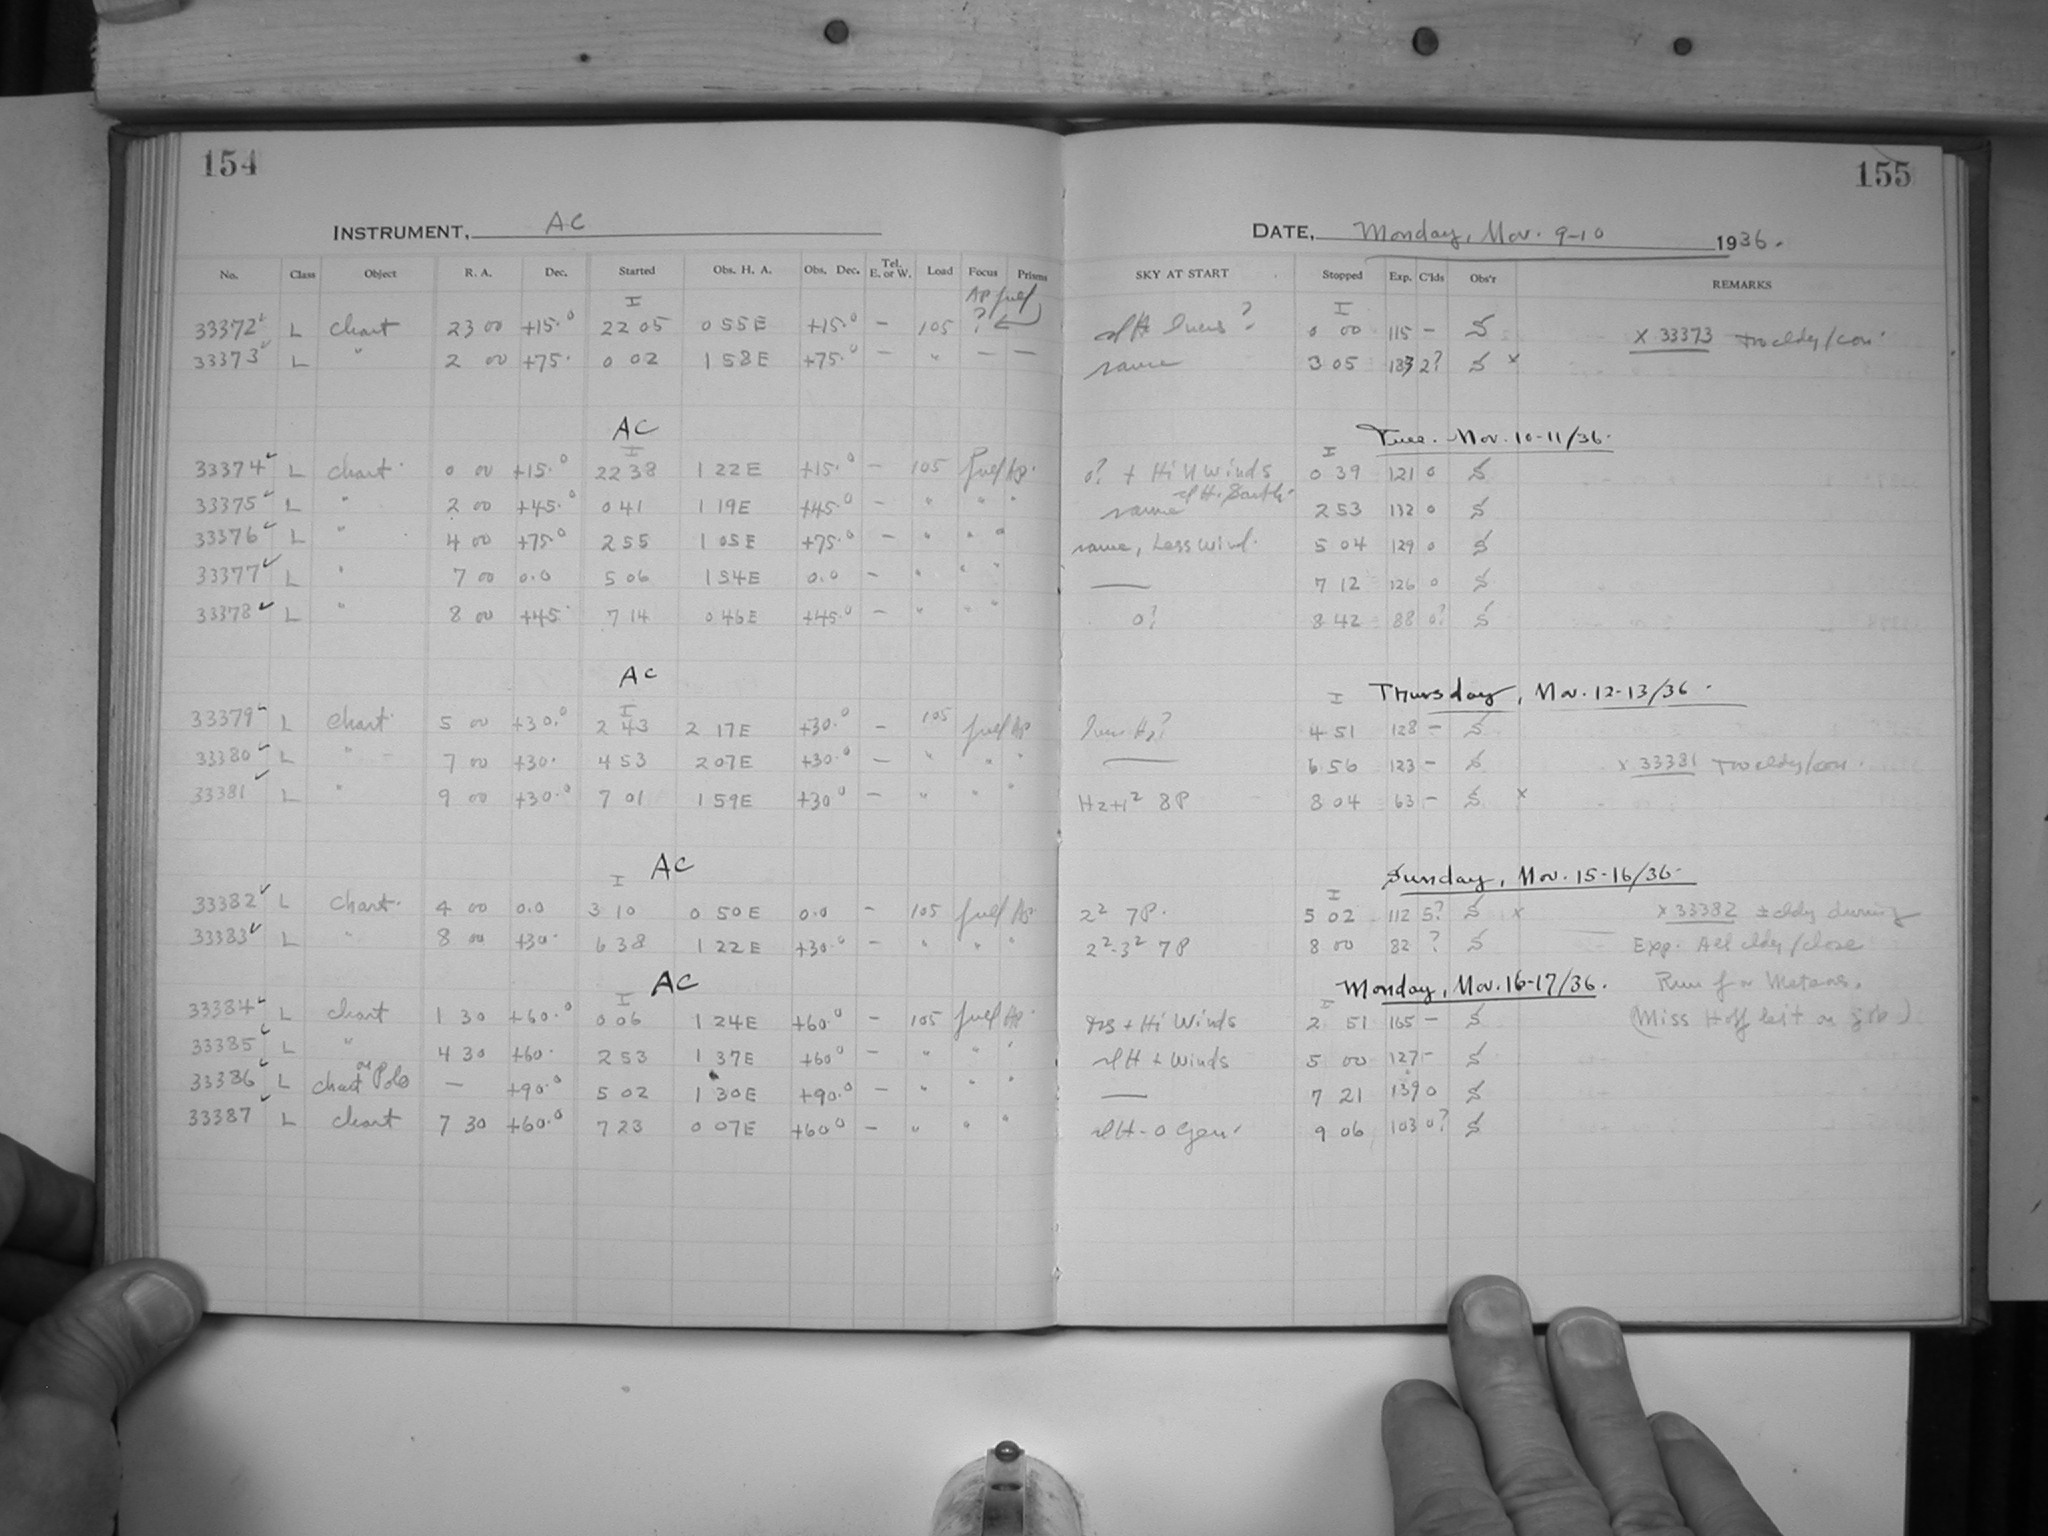 154
155
INSTRUMENT, AC
DATE, Monday, Nov. 9-10 1936.
No. Class Object R. A. Dec. Started Obs. H. A. Obs. Dec. Tel. E. or W. Load Focus Prisms SKY AT START Stopped Exp. C'lds Obs'r REMARKS
I I
33372 L chart 23 00 +15.0 22 05 0 55 E +15.0 - 105 ? 0 00 115 - S x 33373
33373 L " 2 00 +75. 0 02 1 58 E +75.0 - " - - same 3 05 183 2? S x
AC Tues. Nov. 10-11/36.
I I
33374 L chart 0 00 +15.0 22 38 1 22 E +15.0 - 105 0? + Hi N Winds 0 39 121 0 S
33375 L " 2 00 +45.0 0 41 1 19 E +45.0 - " " " same 2 53 132 0 S
33376 L " 4 00 +75.0 2 55 1 05 E +75.0 - " " " same, Less Wind. 5 04 129 0 S
33377 L " 7 00 0.0 5 06 1 54 E 0.0 - " " " — 7 12 126 0 S
33378 L " 8 00 +45 7 14 0 46 E +45.0 - " " " 0? 8 42 88 0? S
AC Thursday, Nov. 12-13/36.
I I
33379 L chart 5 00 +30.0 2 43 2 17 E +30.0 - 105 4 51 128 - S
33380 L " 7 00 +30. 4 53 2 07 E +30.0 - " " " — 6 56 123 - S x 33381
33381 L " 9 00 +30.0 7 01 1 59 E +30.0 - " " " Hz+1² 8P 8 04 63 - S x
AC Sunday, Nov. 15-16/36.
I I
33382 L chart. 4 00 0.0 3 10 0 50 E 0.0 - 105 2² 7P. 5 02 112 5? S x x 33382 ± cldy during
33383 L " 8 00 +30. 6 38 1 22 E +30.0 - " " " 2²-3² 7P 8 00 82 ? S Exp. All cldy/close
AC Monday, Nov. 16-17/36. Run for Meteors.
I I
33384 L chart 1 30 +60.0 0 06 1 24 E +60.0 - 105 + Hi Winds 2 51 165 - S (Miss Hoffleit on job)
33385 L " 4 30 +60. 2 53 1 37 E +60.0 - " " " + Winds 5 00 127 - S
33386 L chart on Pole — +90.0 5 02 1 30 E +90.0 - " " " — 7 21 139 0 S
33387 L chart 7 30 +60.0 7 23 0 07 E +60.0 - " " " 9 06 103 0? S